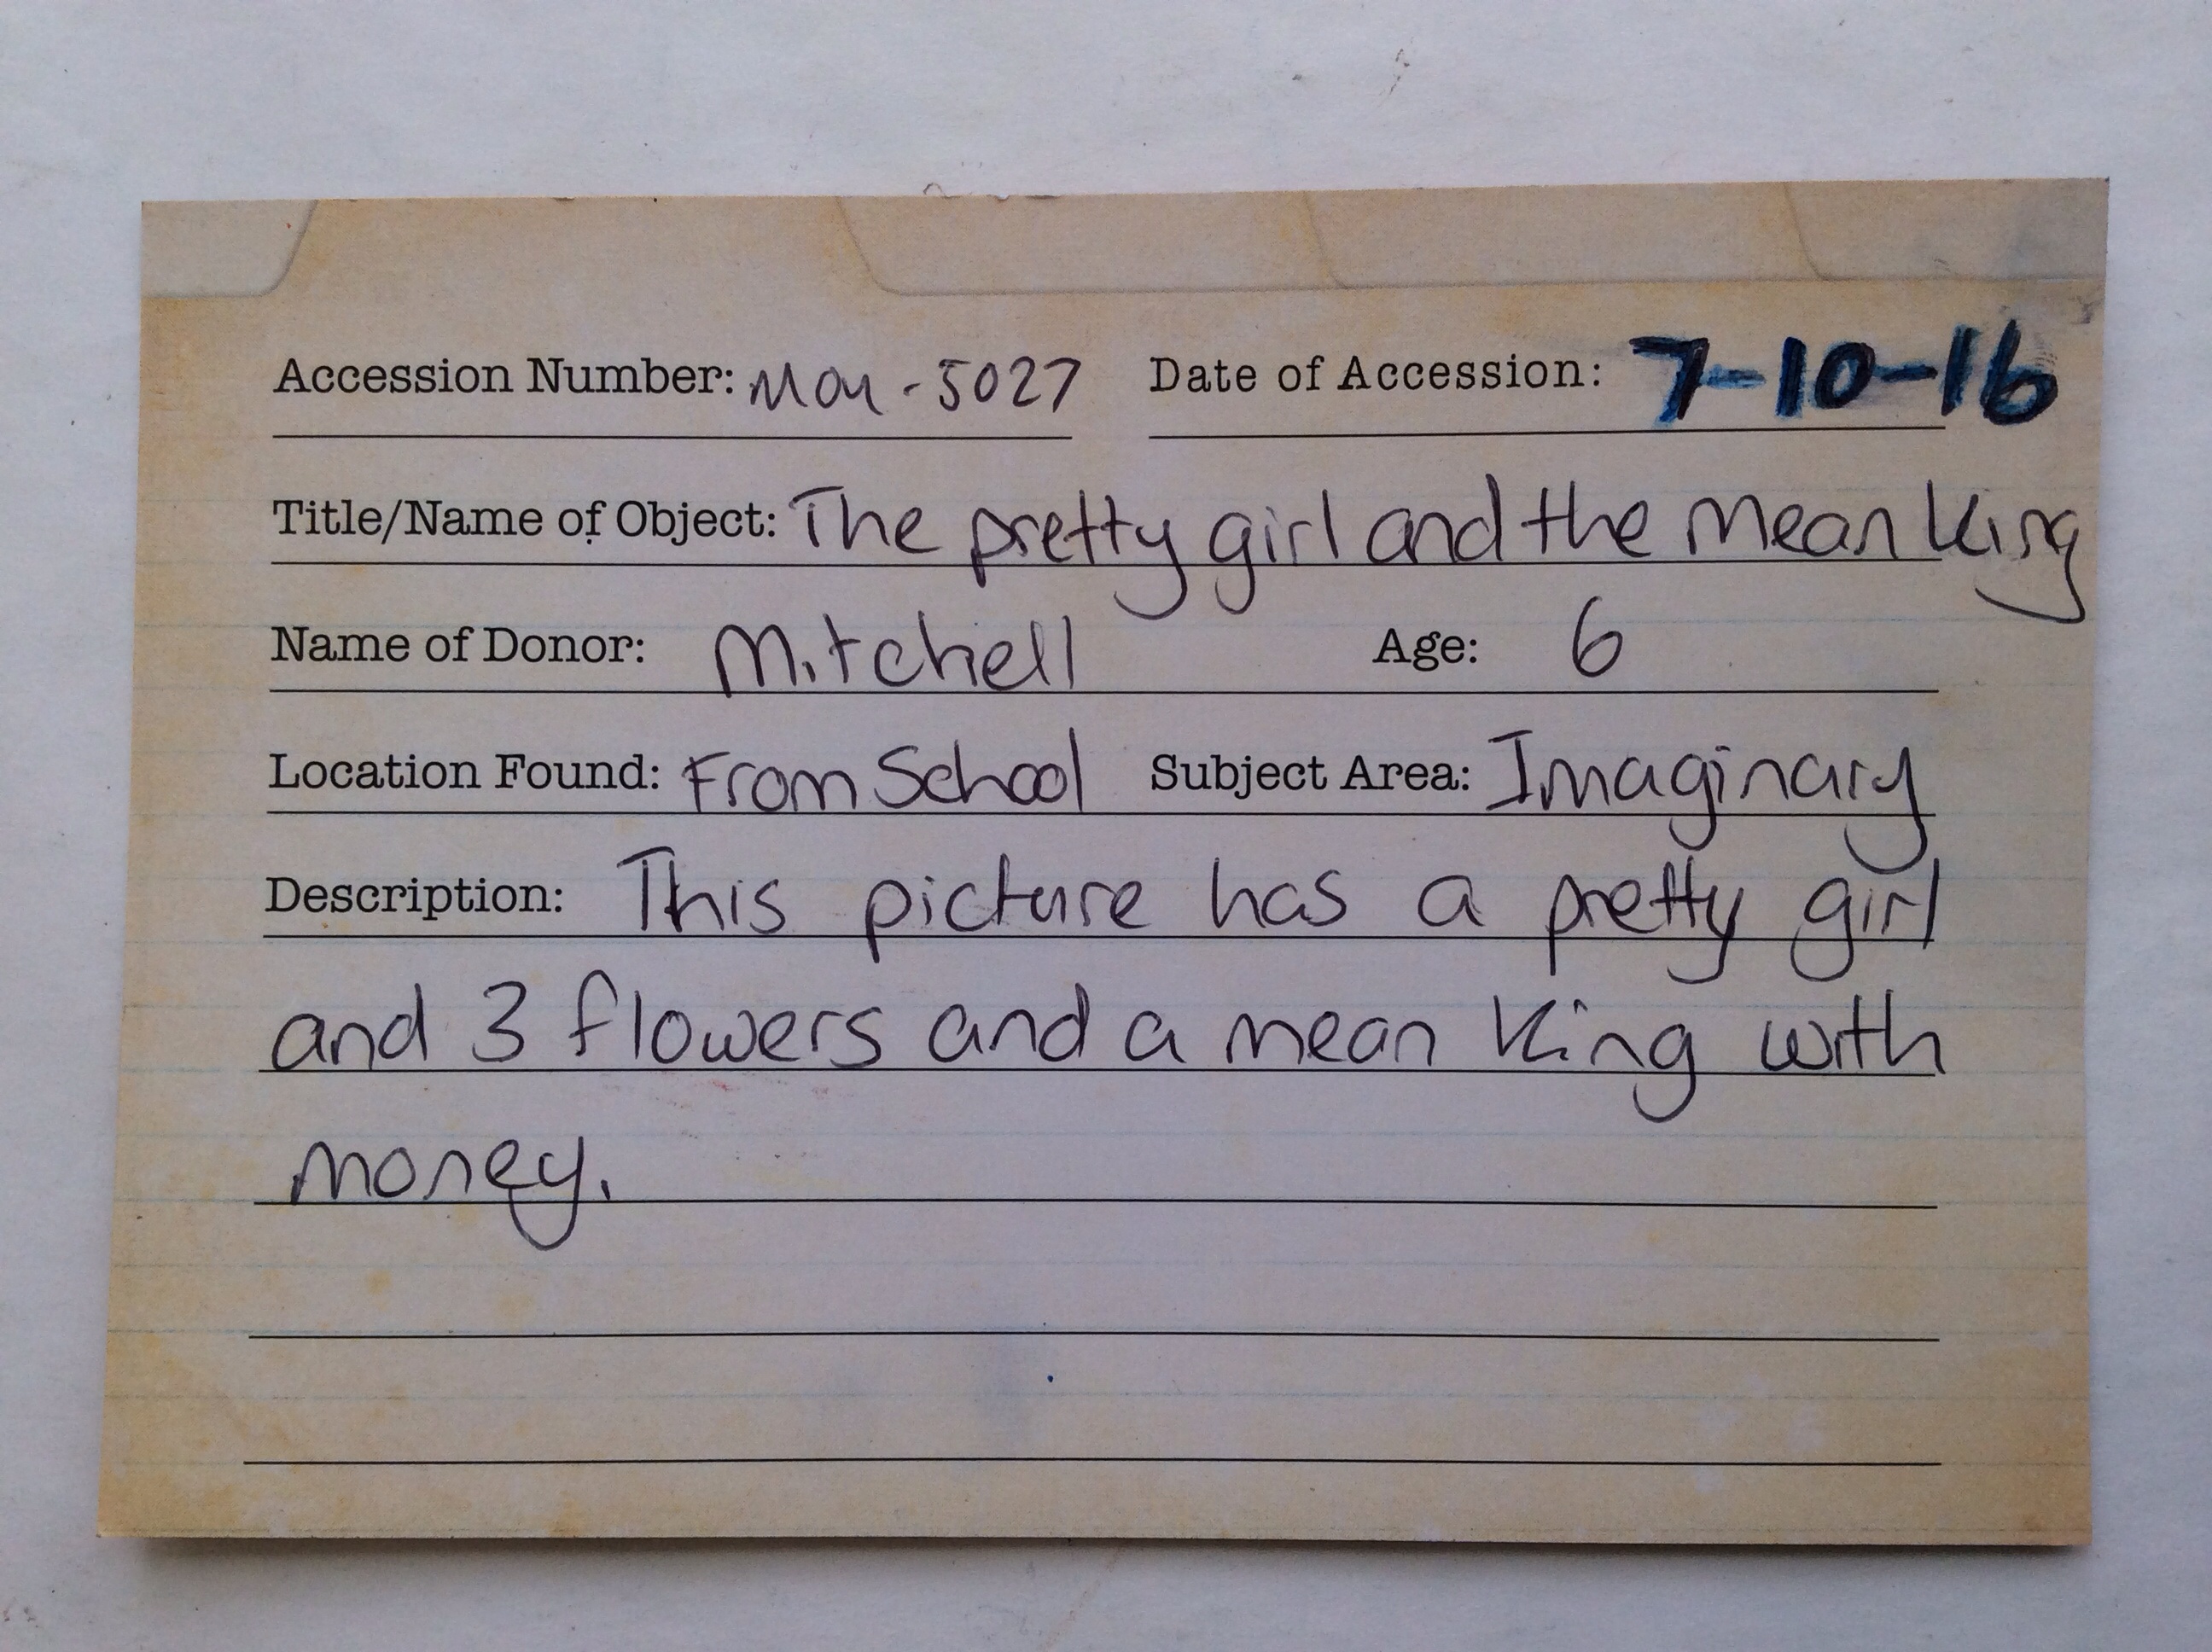 Accession Number: MOU-5027 Date of Accession: 7-10-16
Title/Name of Object: The pretty girl and the mean King
Name of Donor: Mitchell Age: 6
Location Found: From School Subject Area: Imaginary
Description: This picture has a pretty girl
and 3 flowers and a mean King with
money.